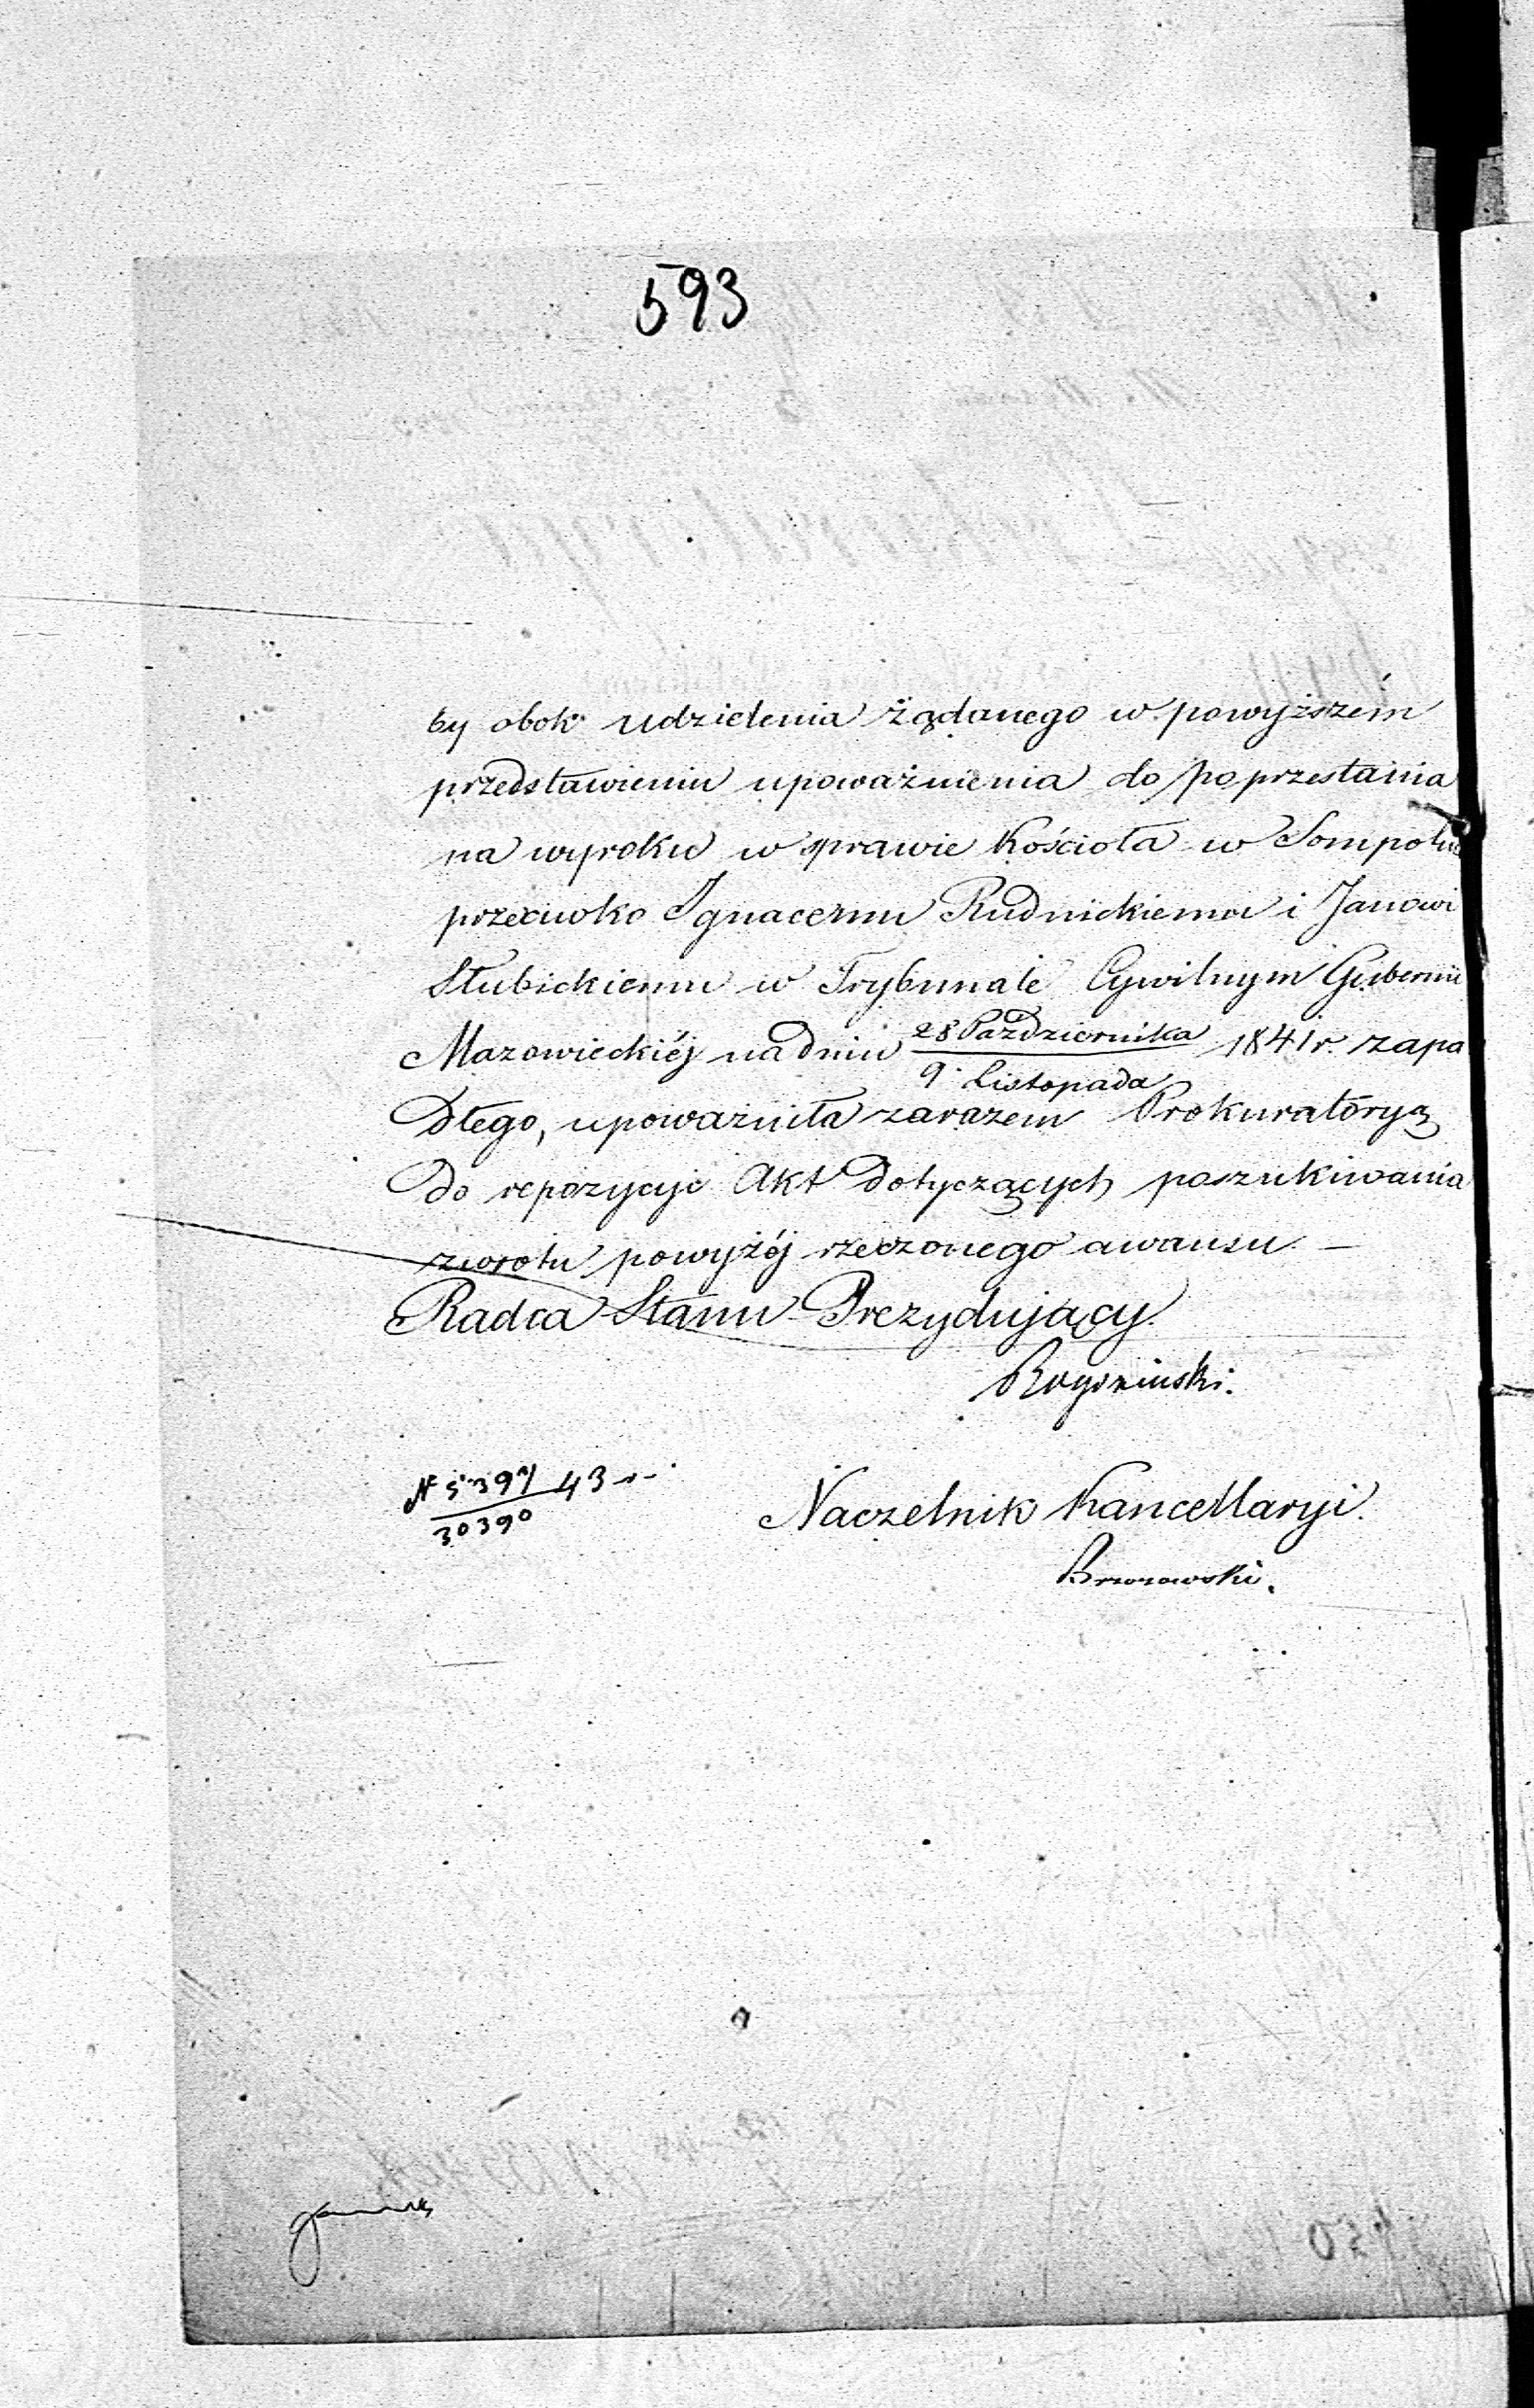 593
by obok udzielenia żądanego w powyższém
przedstawieniu upoważnienia do poprzestania
na wyroku w sprawie Kościoła w Sompolnie
przeciwko Ignacemu Rudnickiemu i Janowi
Słubickiemu w Trybunale Cywilnym Gubernii
Mazowieckiéj na dniu 28 Października / 9 Listopada 1841 r. zapa
dłego, upoważniła zarazem Prokuratoryą
do repozycyi Akt dotyczących poszukiwania
zwrotu powyżéj rzeczonego awansu. —
Radca Stanu Prezydujący.
N 5397 / 30390 43 r.
Naczelnik Kancellaryi.
Brzozowski.